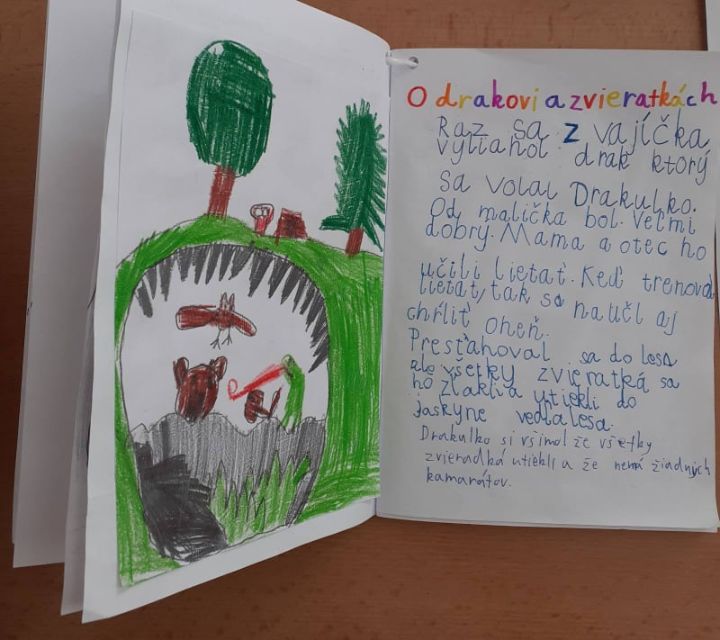 O drakovi a zvieratkách
Raz sa z vajíčka
vyliahol drak ktorý
sa volal Drakulko.
Od malička bol veľmi
dobrý. Mama a otec ho
učili lietať. Keď trenoval
lietať, tak sa naučl aj
chŕliť oheň.
Presťahoval sa do lesa
ale všetky zvieratká sa
ho zlakli a utiekli do
jaskyne vedľa lesa.
Drakulko si všimol že všetky
zvieradká utiekli a že nemá žiadných
kamarátov.